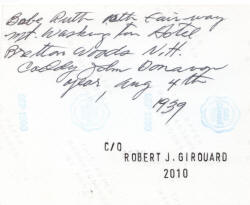 Babe Ruth 10th Fairway
Mt Washington Hotel
Bretton Woods N.H.
Caddy John Donavan
year, Aug 4th
1939
C/O
ROBERT J. GIROUARD
2010